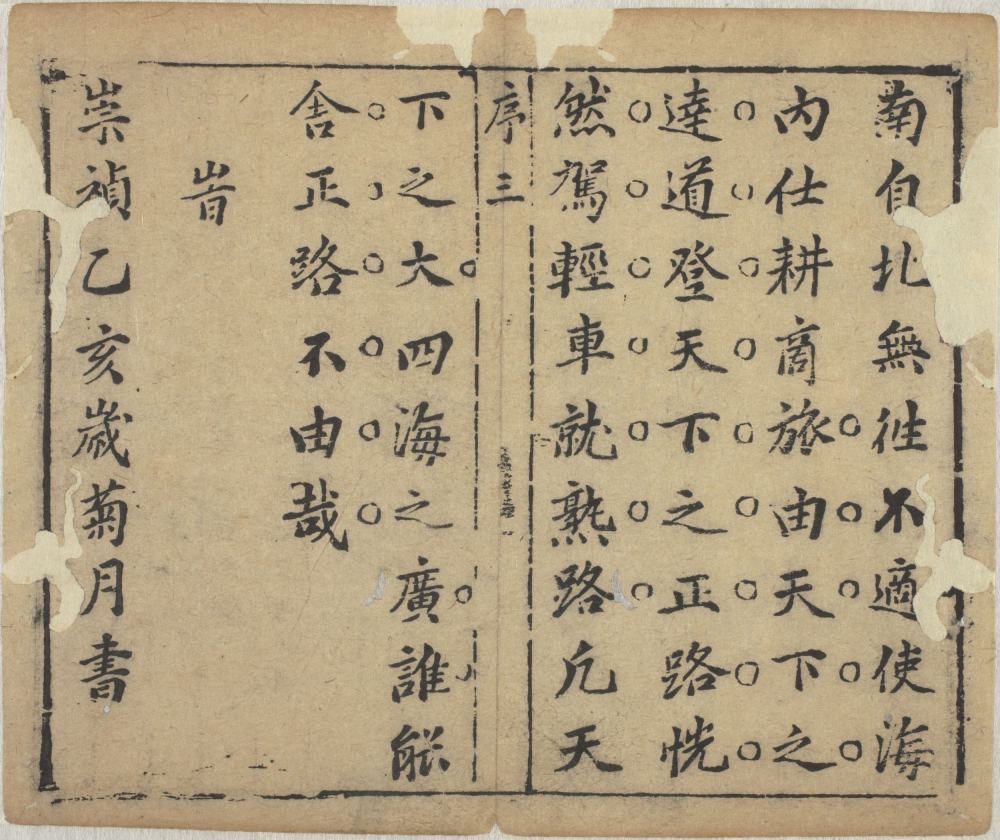 南自北無徃不適使海
内仕耕商旅由天下之
達道登天下之正路恍
然駕輕車就熟路凢天
序 三
下之大四海之廣誰能
舎正路不由哉
旹
崇禎乙亥嵗菊月書